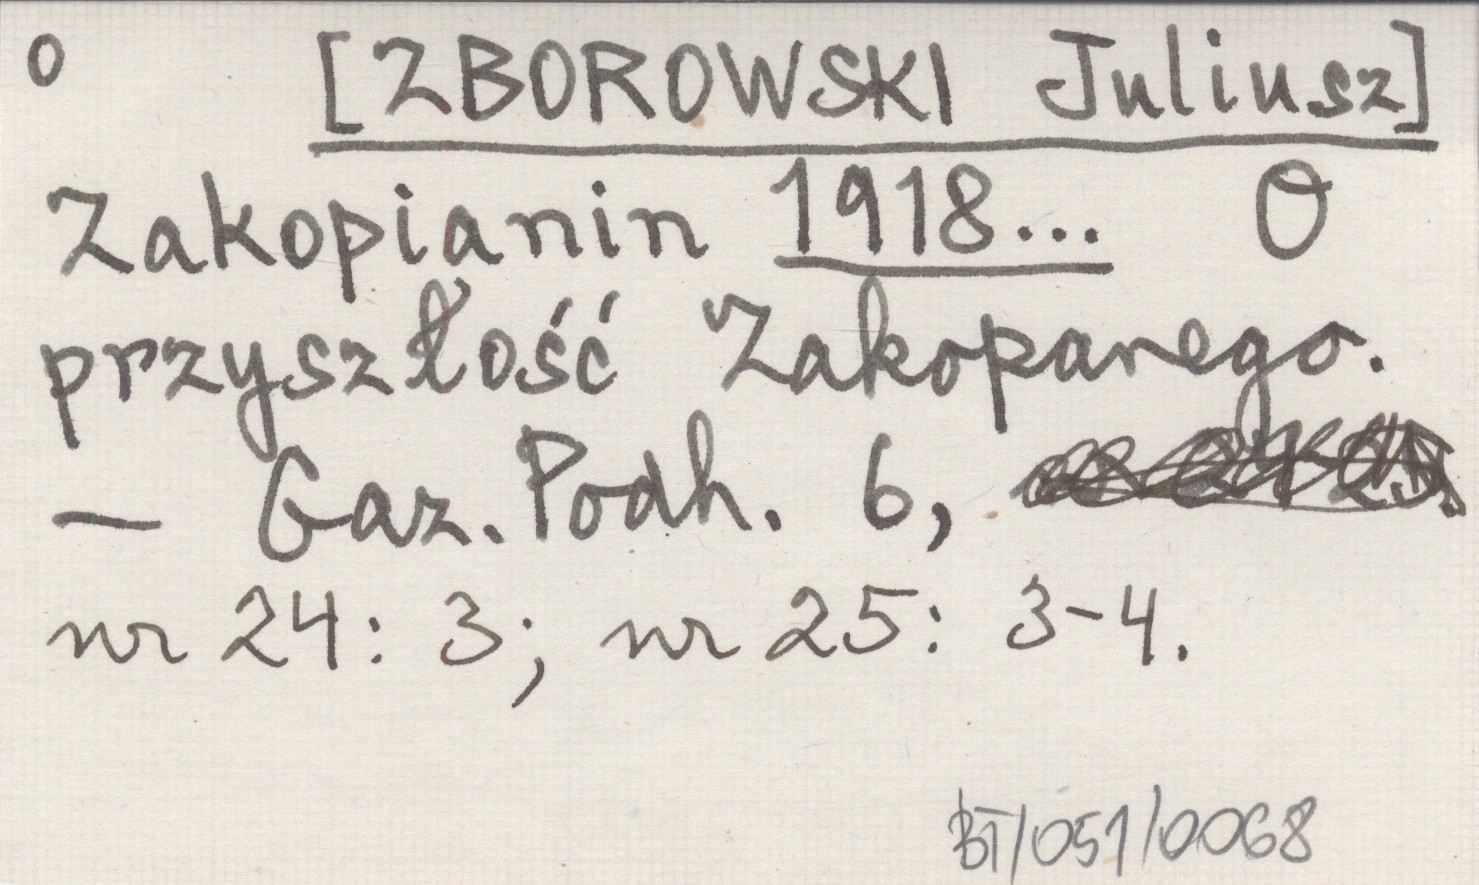 o [ZBOROWSKI Juliusz]
Zakopianin 1918... O
przyszłość Zakopanego.
— Gaz. Podh. 6,
nr 24: 3; nr 25: 3-4.
BT/051/0068